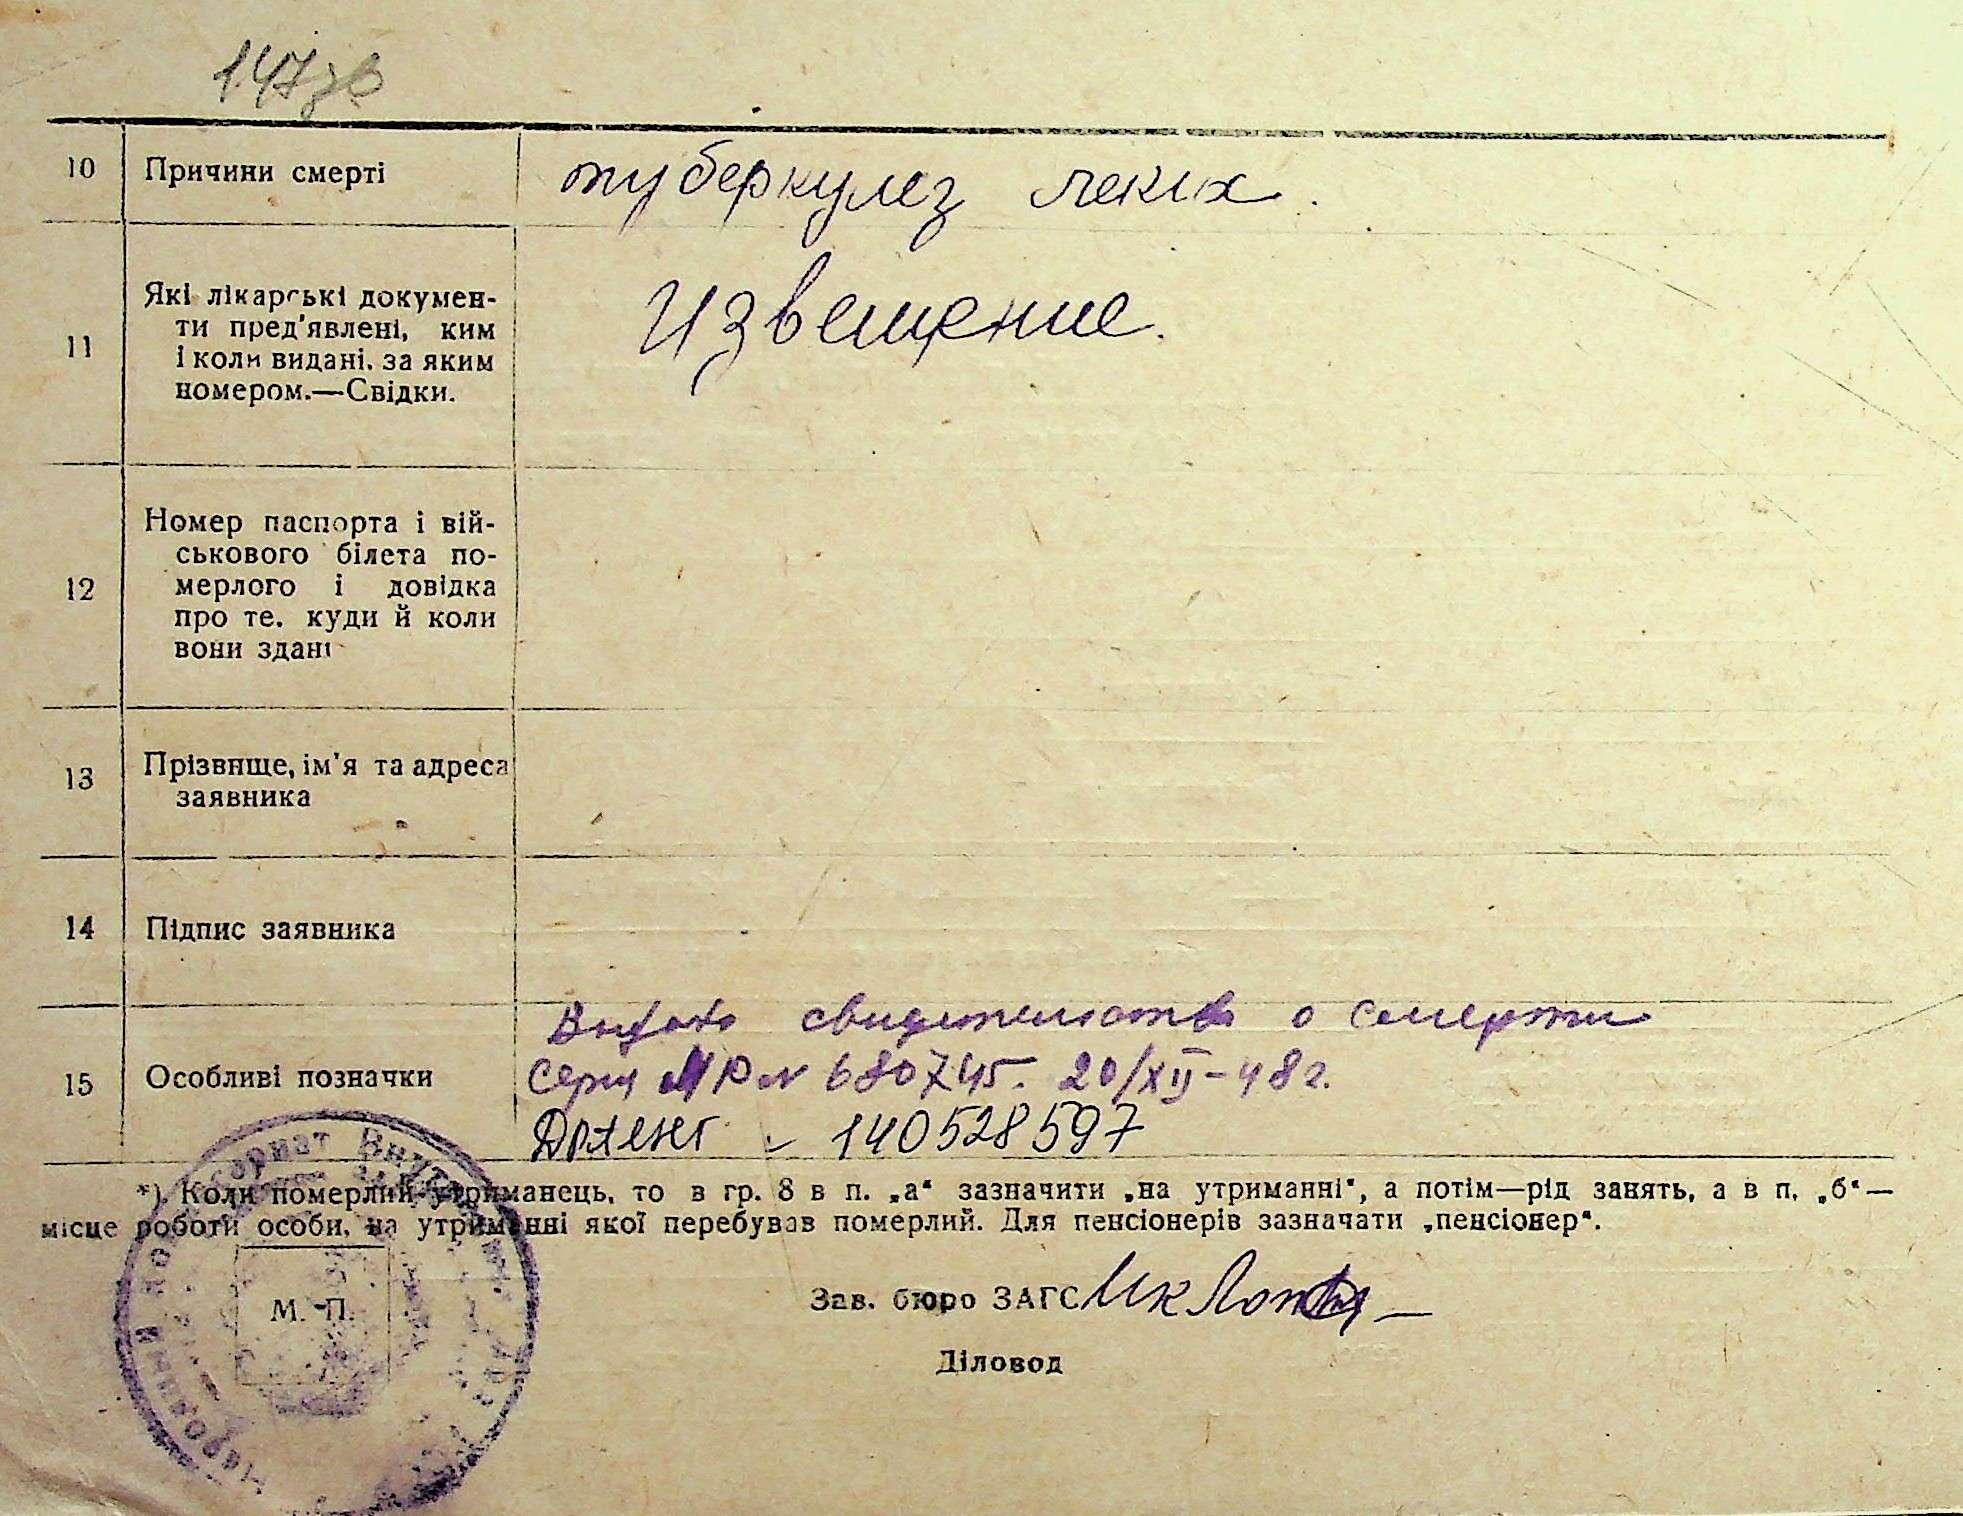 147зв
10 Причини смерті туберкулез легких.
11 Які лікарські докумен-
ти пред'явлені, ким
і коли видані, за яким
номером.—Свідки.
Извещение.
12 Номер паспорта і вій-
ськового білета по-
мерлого і довідка
про те, куди й коли
вони здані
13 Прізвище, ім'я та адреса
заявника
14 Підпис заявника
15 Особливі позначки
Выдано свидетельство о смерти
Серия № 680745. 20/XII-48г.
140528597
*) Коли померлий утриманець, то в гр. 8 в п. „а“ зазначити „на утриманні“, а потім—рід занять, а в п. „б“—
місце роботи особи, на утриманні якої перебував померлий. Для пенсіонерів зазначати „пенсіонер“.
М. П.
Зав. бюро ЗАГС
Діловод